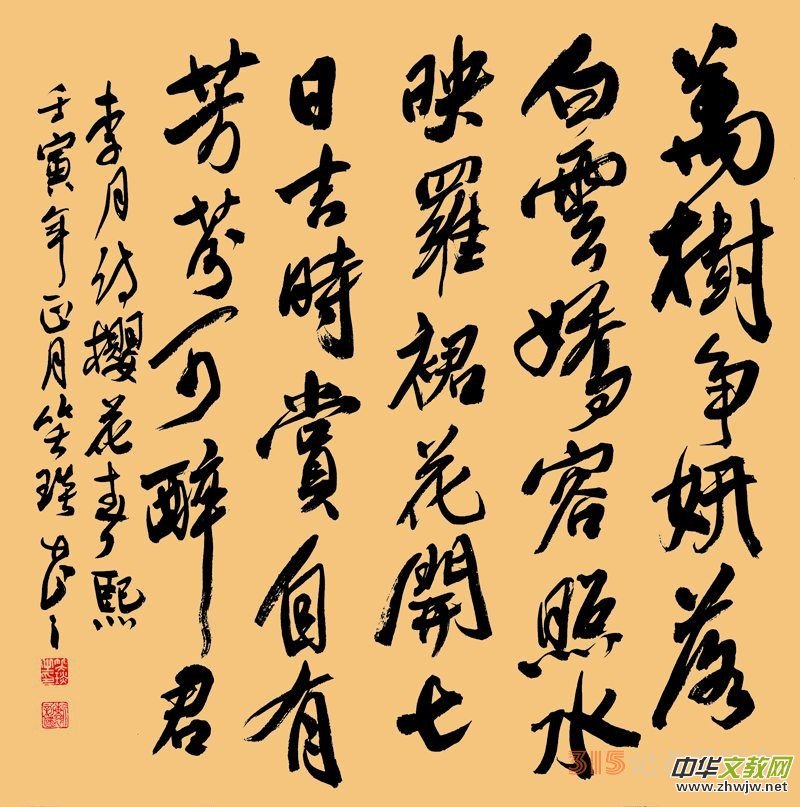 萬樹争妍落
白雲嬌容照水
映羅裙花開七
日吉時賞自有
芳芬可醉君
李月诗櫻花 熙
壬寅年正月笑琰
315
中华文教网
www.zhwjw.net